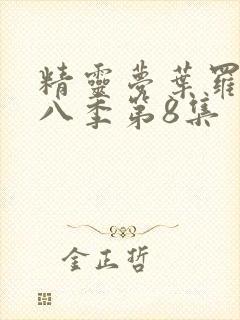 精靈夢葉羅
八季第8集
金正哲